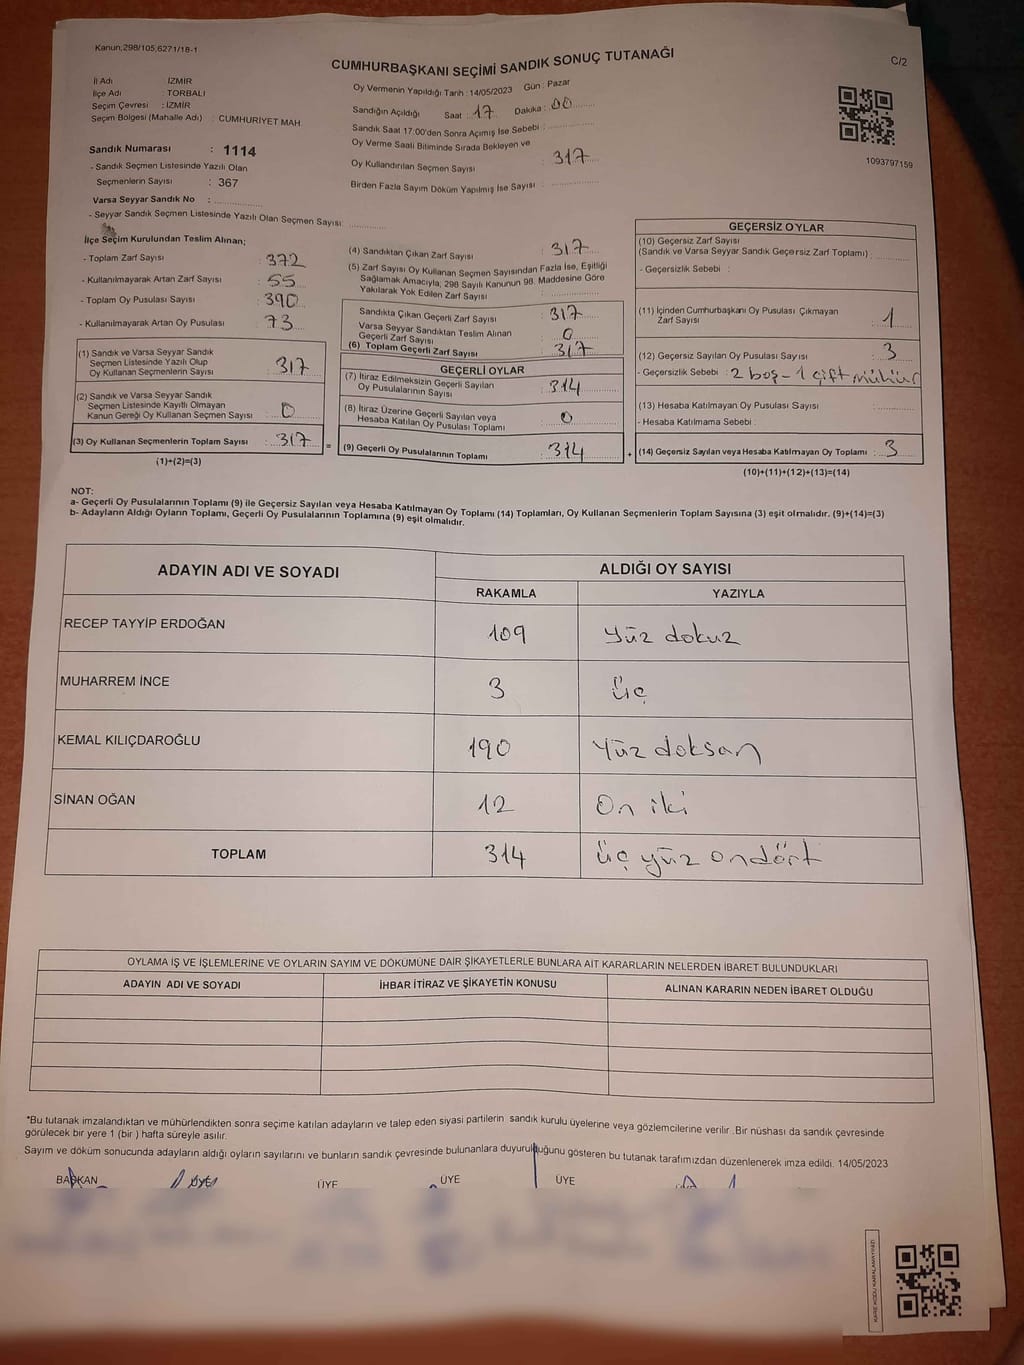 Kanun,298/105,6271/18-1
CUMHURBAŞKANI SEÇİMİ SANDIK SONUÇ TUTANAĞI
C/2
İl Adı : İZMİR
İlçe Adı : TORBALI
Seçim Çevresi : İZMİR
Seçim Bölgesi (Mahalle Adı) : CUMHURİYET MAH.
Sandık Numarası : 1114
- Sandık Seçmen Listesinde Yazılı Olan
Seçmenlerin Sayısı : 367
Varsa Seyyar Sandık No :
- Seyyar Sandık Seçmen Listesinde Yazılı Olan Seçmen Sayısı:
Oy Vermenin Yapıldığı Tarih :14/05/2023 Gün : Pazar
Sandığın Açıldığı Saat : 17 Dakika : 00
Sandık Saat 17:00'den Sonra Açımış İse Sebebi :
Oy Verme Saati Bitiminde Sırada Bekleyen ve
Oy Kullandırılan Seçmen Sayısı : 317
Birden Fazla Sayım Döküm Yapılmış İse Sayısı :
1093797159
İlçe Seçim Kurulundan Teslim Alınan;
- Toplam Zarf Sayısı : 372
- Kullanılmayarak Artan Zarf Sayısı : 55
- Toplam Oy Pusulası Sayısı : 390
- Kullanılmayarak Artan Oy Pusulası : 73
(1) Sandık ve Varsa Seyyar Sandık
Seçmen Listesinde Yazılı Olup
Oy Kullanan Seçmenlerin Sayısı : 317
(2) Sandık ve Varsa Seyyar Sandık
Seçmen Listesinde Kayıtlı Olmayan
Kanun Gereği Oy Kullanan Seçmen Sayısı : 0
(3) Oy Kullanan Seçmenlerin Toplam Sayısı : 317
(1)+(2)=(3)
=
(4) Sandıktan Çıkan Zarf Sayısı : 317
(5) Zarf Sayısı Oy Kullanan Seçmen Sayısından Fazla İse, Eşitliği
Sağlamak Amacıyla; 298 Sayılı Kanunun 98. Maddesine Göre
Yakılarak Yok Edilen Zarf Sayısı :
Sandıkta Çıkan Geçerli Zarf Sayısı : 317
Varsa Seyyar Sandıktan Teslim Alınan
Geçerli Zarf Sayısı : 0
(6) Toplam Geçerli Zarf Sayısı : 317
GEÇERLİ OYLAR
(7) İtiraz Edilmeksizin Geçerli Sayılan
Oy Pusulalarının Sayısı : 314
(8) İtiraz Üzerine Geçerli Sayılan veya
Hesaba Katılan Oy Pusulaları Toplamı : 0
(9) Geçerli Oy Pusulalarının Toplamı : 314
+
GEÇERSİZ OYLAR
(10) Geçersiz Zarf Sayısı
(Sandık ve Varsa Seyyar Sandık Geçersiz Zarf Toplamı) :
- Geçersizlik Sebebi :
(11) İçinden Cumhurbaşkanı Oy Pusulası Çıkmayan
Zarf Sayısı : 1
(12) Geçersiz Sayılan Oy Pusulası Sayısı : 3
- Geçersizlik Sebebi : 2 boş - 1 çift mühür
(13) Hesaba Katılmayan Oy Pusulası Sayısı :
- Hesaba Katılmama Sebebi :
(14) Geçersiz Sayılan veya Hesaba Katılmayan Oy Toplamı : 3
(10)+(11)+(12)+(13)=(14)
NOT:
a- Geçerli Oy Pusulalarının Toplamı (9) ile Geçersiz Sayılan veya Hesaba Katılmayan Oy Toplamı (14) Toplamları, Oy Kullanan Seçmenlerin Toplam Sayısına (3) eşit olmalıdır. (9)+(14)=(3)
b- Adayların Aldığı Oyların Toplamı, Geçerli Oy Pusulalarının Toplamına (9) eşit olmalıdır.
ADAYIN ADI VE SOYADI
ALDIĞI OY SAYISI
RAKAMLA YAZIYLA
RECEP TAYYİP ERDOĞAN 109 Yüz dokuz
MUHARREM İNCE 3 üç
KEMAL KILIÇDAROĞLU 190 Yüz doksan
SİNAN OĞAN 12 On iki
TOPLAM 314 üç yüz ondört
OYLAMA İŞ VE İŞLEMLERİNE VE OYLARIN SAYIM VE DÖKÜMÜNE DAİR ŞİKAYETLERLE BUNLARA AİT KARARLARIN NELERDEN İBARET BULUNDUKLARI
ADAYIN ADI VE SOYADI İHBAR İTİRAZ VE ŞİKAYETİN KONUSU ALINAN KARARIN NEDEN İBARET OLDUĞU
*Bu tutanak imzalandıktan ve mühürlendikten sonra seçime katılan adayların ve talep eden siyasi partilerin sandık kurulu üyelerine veya gözlemcilerine verilir. Bir nüshası da sandık çevresinde
görülecek bir yere 1 (bir ) hafta süreyle asılır.
Sayım ve döküm sonucunda adayların aldığı oyların sayılarını ve bunların sandık çevresinde bulunanlara duyurulduğunu gösteren bu tutanak tarafımızdan düzenlenerek imza edildi. 14/05/2023
BAŞKAN ÜYE ÜYE ÜYE
KARE KODU KARALAMAYINIZ!